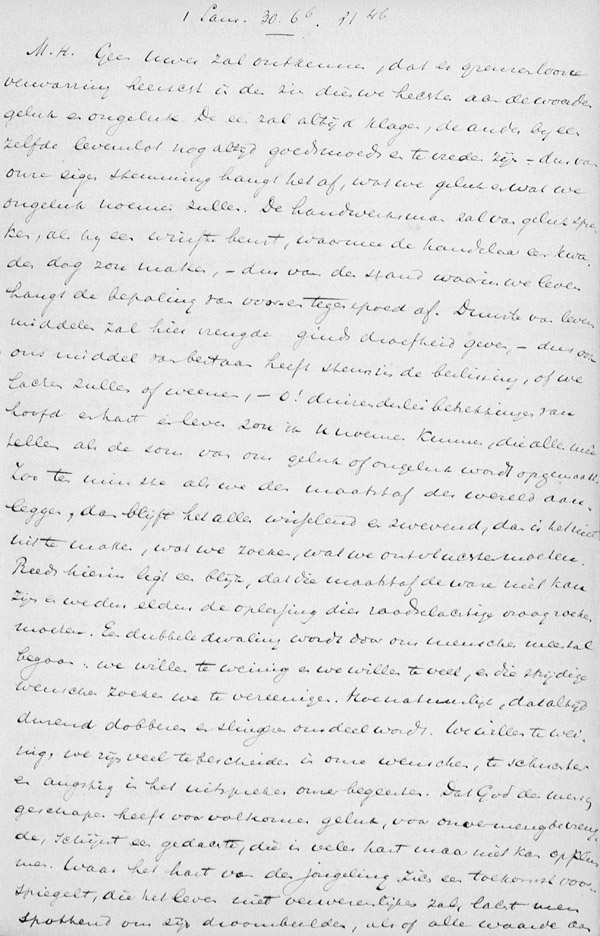 1 Sam. 30. 6b. Ps 46.
M. H. Geen uwer zal ontkennen, dat er grenzenloore
verwarring heerscht in den zin dien we hechten aan de woorden
geluk en ongeluk. De een zal altijd klagen, de ander bij een
zelfde levenslot nog altijd goedsmoeds en te vreden zijn – dus van
onze eigen stemming hangt het af, wat we geluk en wat we
ongeluk noemen zullen. De handwerksman zal van geluk spre-
ken, als hij een winstje beurt, waarmee de handelaar een kwa-
den dag zou maken, – dus van den stand waarin we leven
hangt de bepaling van voor en tegenspoed af. Dezelfde levens
middelen zal hier vreugde ginds droefheid geven, – dus ook
ons middel van bestaan heeft stem in de beslissing, of we
lachen zullen of weenen, – O! duizenderlei betrekkingen van
hoofd en hart en leven zou ik U noemen kunnen, die alle mee
tellen als de som van ons geluk of ongeluk wordt opgemaakt.
Zoo ten minste als we den maatstaf der wereld aan-
leggen, dan blijft het alles wijfelend en zwevend, dan is het niet
uit te maken, wat we zoeken, wat we ontvluchten moeten.
Reeds hierin ligt een blijk, dat die maatstaf de ware niet kan
zijn en we dus elders de oplossing dier raadselachtige vraag zoeken
moeten. Een dubbele dwaling wordt door ons menschen meestal
begaan: we willen te weinig en we willen te veel, en die strijdige
wenschen zoeken we te vereenigen. Hoe natuurlijk, dat altijd
durend dobberen en slingren ons deel wordt. We willen te wei-
nig, we zijn veel te bescheiden in onze wenschen, te schuchter
en angstig in het uitspreken onzer begeerten. Dat God den mensch
geschapen heeft voor volkomen geluk, voor onvermengde vreug
de, schijnt een gedachte, die in veler hart maar niet kan opklim
men. Waar het hart van den jongeling zich een toekomst voor-
spiegelt, die het leven niet verwezenlijken zal, lacht men
spottend om zijn droombeelden, alsof alle waarde aan